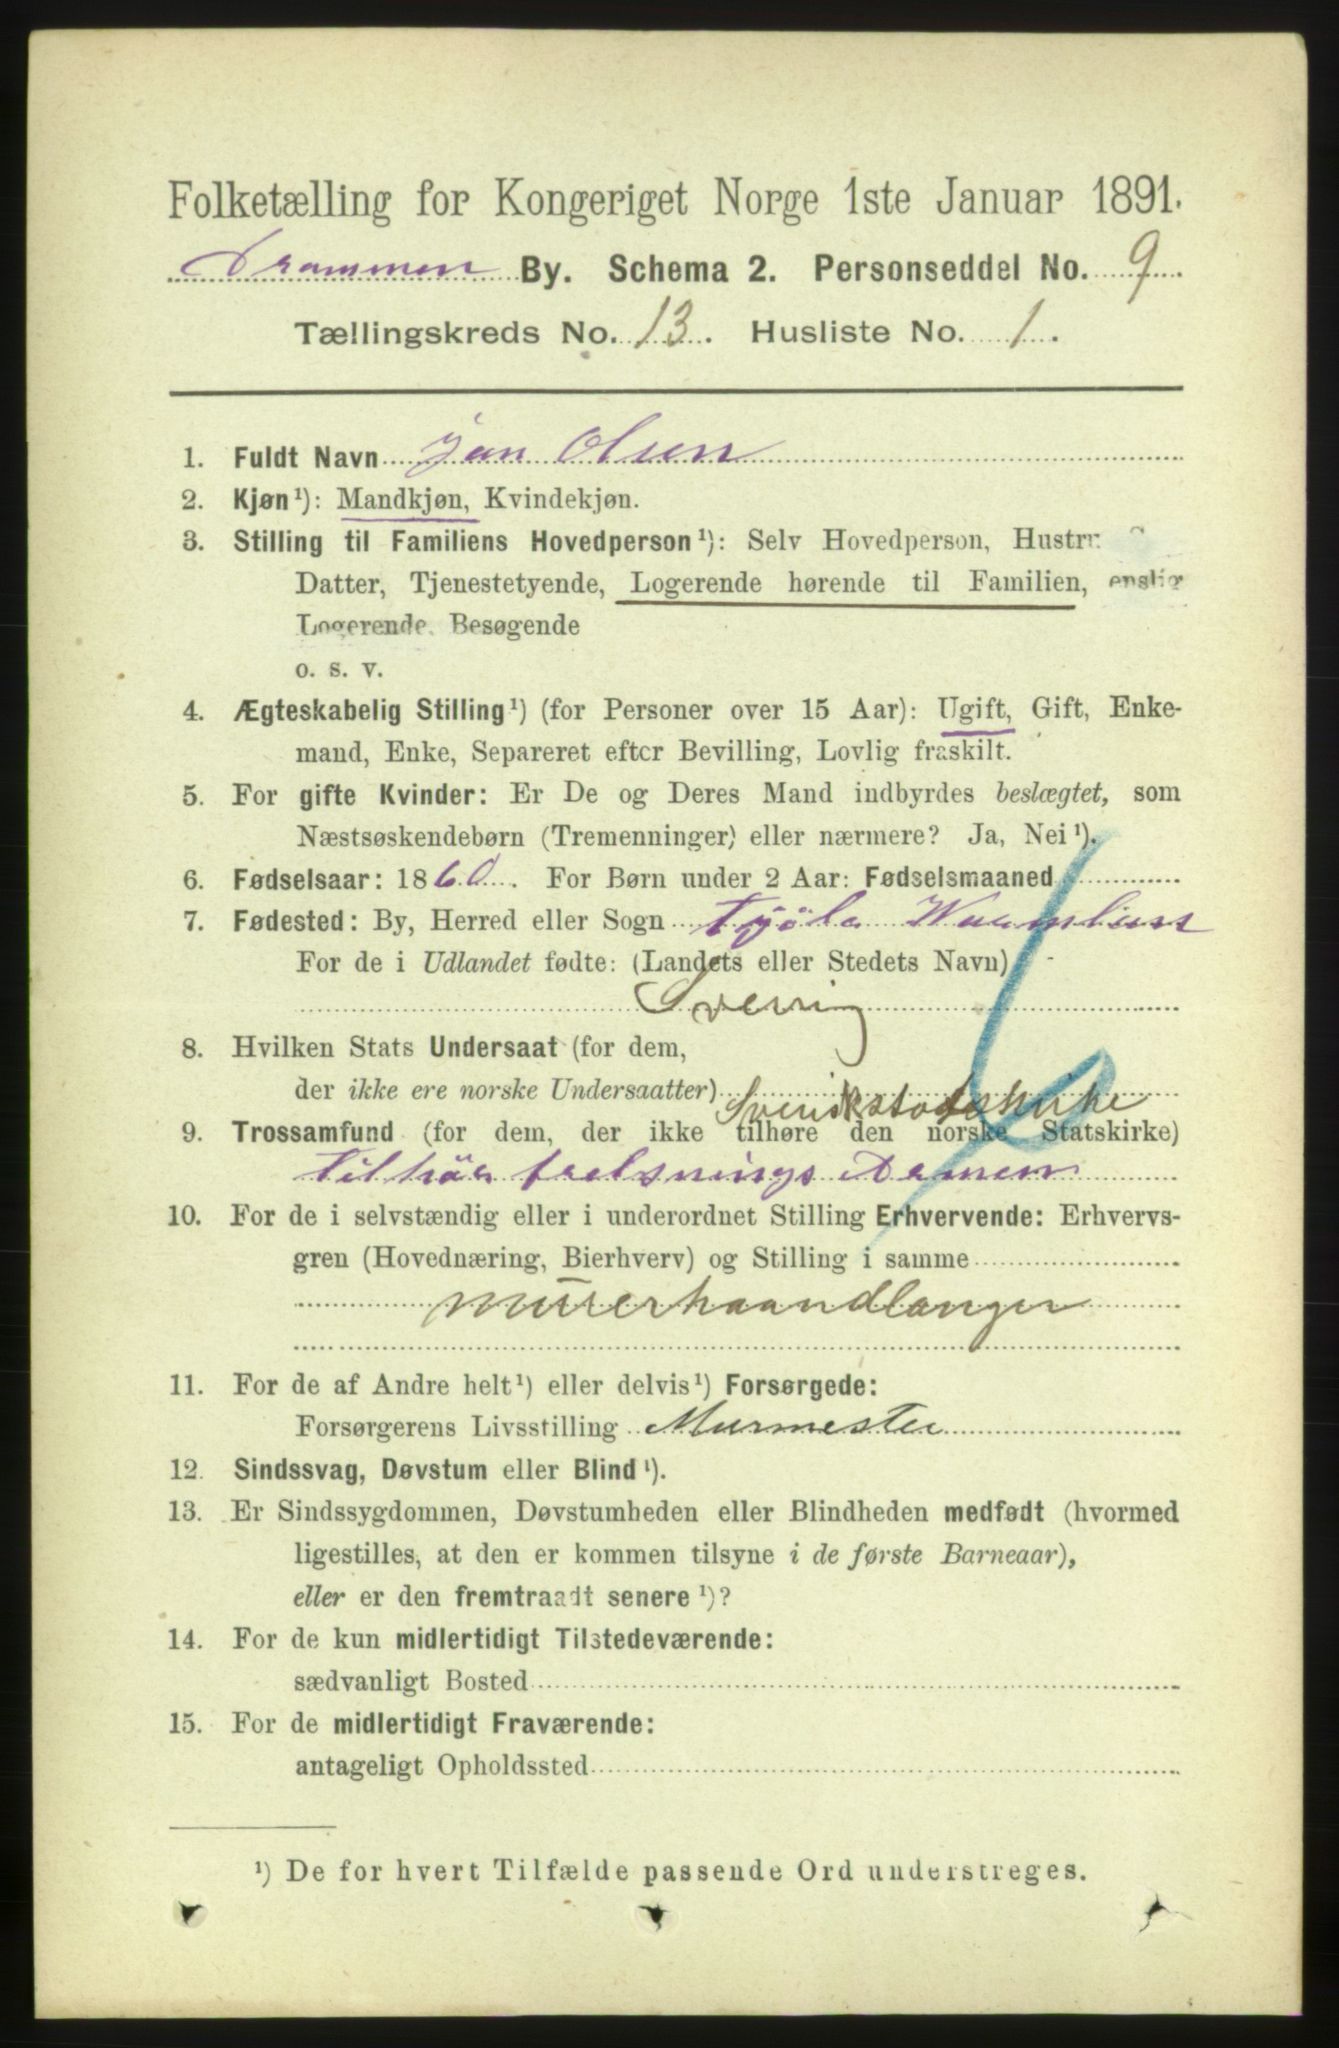 Folketælling for Kongeriget Norge 1ste Januar 1891.
Drammen By. Schema 2. Personseddel No. 9
Tællingskreds No. 13. Husliste No. 1.
1. Fuldt Navn Jan Olsen
2. Kjøn¹): Mandkjøn, Kvindekjøn.
3. Stilling til Familiens Hovedperson¹): Selv Hovedperson, Hustru
Datter, Tjenestetyende, Logerende hørende til Familien, enslig
Logerende, Besøgende
o. s. v.
4. Ægteskabelig Stilling¹) (for Personer over 15 Aar): Ugift, Gift, Enke-
mand, Enke, Separeret efter Bevilling, Lovlig fraskilt.
5. For gifte Kvinder: Er De og Deres Mand indbyrdes beslægtet, som
Næstsøskendebørn (Tremenninger) eller nærmere? Ja, Nei¹).
6. Fødselsaar: 1860. For Børn under 2 Aar: Fødselsmaaned
7. Fødested: By, Herred eller Sogn
For de i Udlandet fødte: (Landets eller Stedets Navn)
Sverrig
8. Hvilken Stats Undersaat (for dem,
der ikke ere norske Undersaatter) Svensk statskirke
9. Trossamfund (for dem, der ikke tilhøre den norske Statskirke)
tilhör frelsnings Armeen
10. For de i selvstændig eller i underordnet Stilling Erhvervende: Erhvervs-
gren (Hovednæring, Bierhverv) og Stilling i samme
murerhaandlanger
11. For de af Andre helt¹) eller delvis¹) Forsørgede:
Forsørgerens Livsstilling Murmester
12. Sindssvag, Døvstum eller Blind¹).
13. Er Sindssygdommen, Døvstumheden eller Blindheden medfødt (hvormed
ligestilles, at den er kommen tilsyne i de første Barneaar),
eller er den fremtraadt senere¹)?
14. For de kun midlertidigt Tilstedeværende:
sædvanligt Bosted
15. For de midlertidigt Fraværende:
antageligt Opholdssted
¹) De for hvert Tilfælde passende Ord understreges.